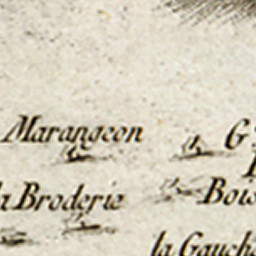 Marangeon G
la Broderie Bois
la Gauche